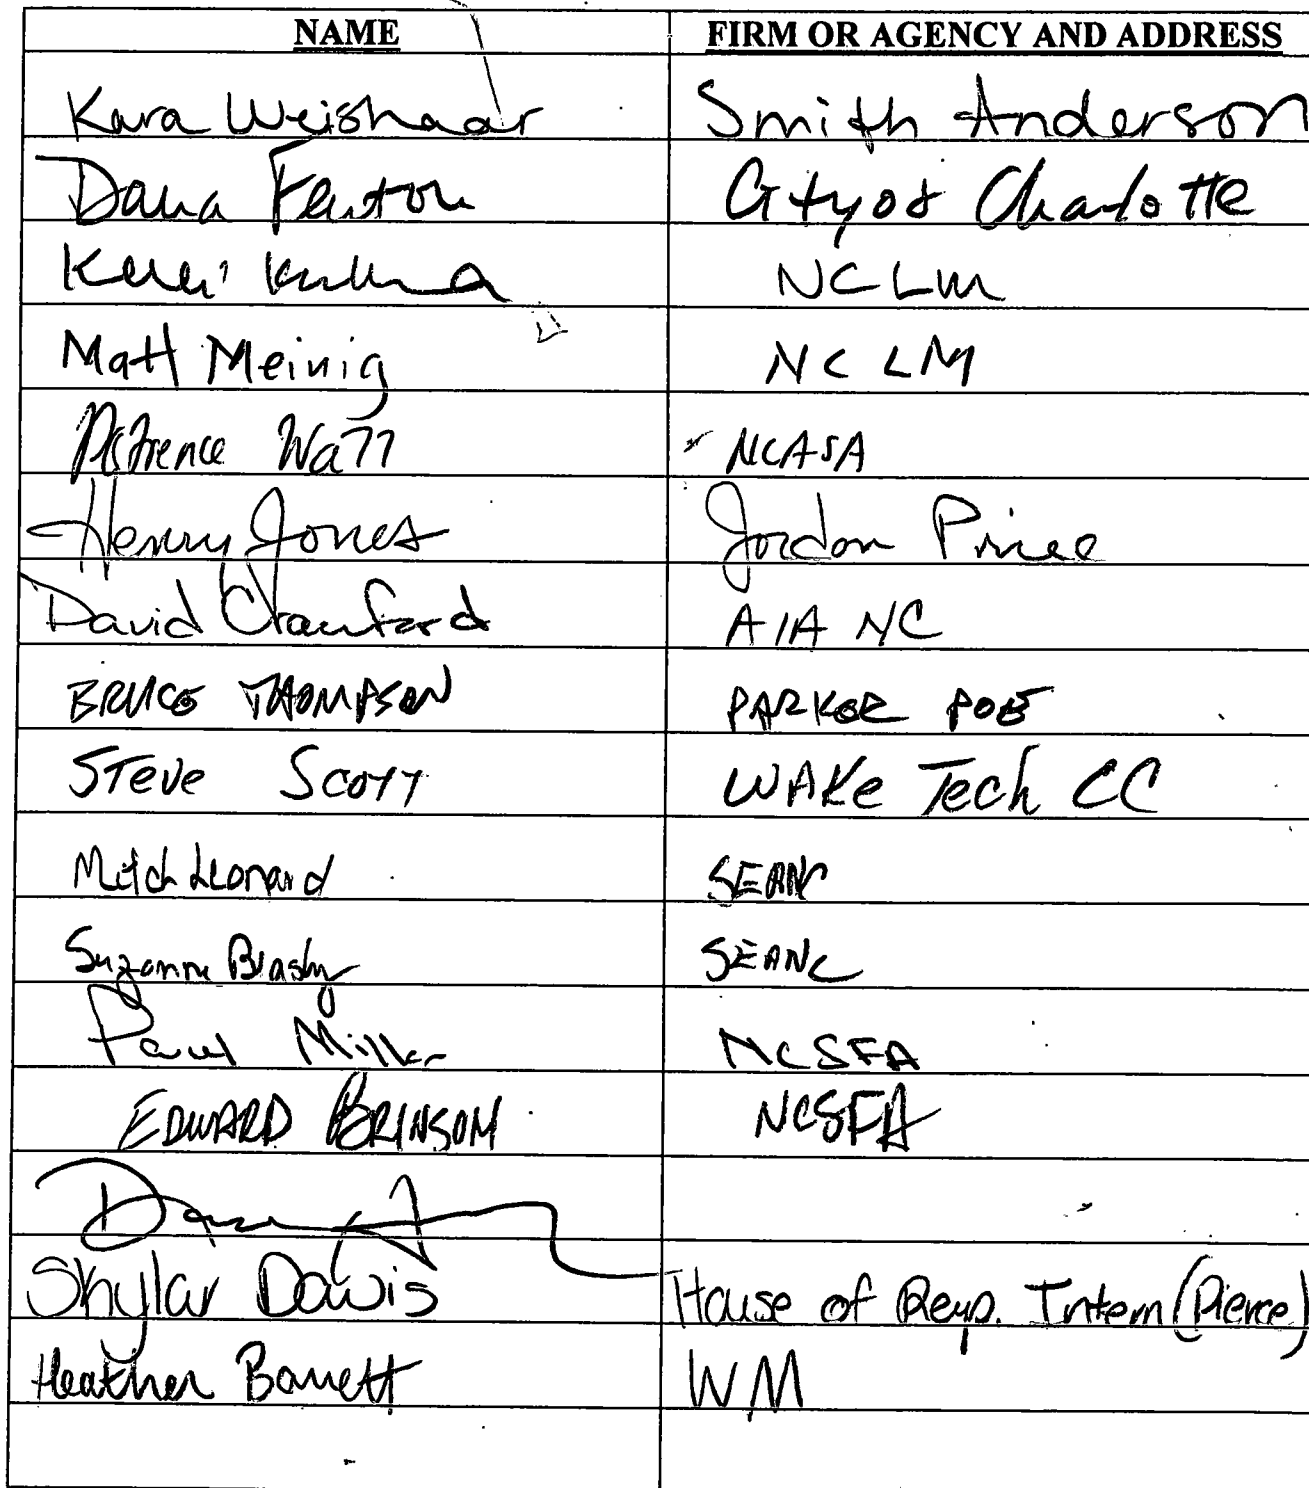 NAME FIRM OR AGENCY AND ADDRESS
Kara Weishaar Smith Anderson
Dana Fenton City of Charlotte
NCLM
Matt Meinig NCLM
NCASA
Henry Jones Jordan Price
David Crawford AIA NC
BRUCE THOMPSON PARKER POE
STeve Scott WAKe Tech CC
Mitch Leonard SEANC
Suzanne Beasley SEANC
Paul Miller NCSFA
EDWARD BRINSON NCSFA
Skylar Davis House of Rep. Intern (Pierce)
Heather Barrett WM